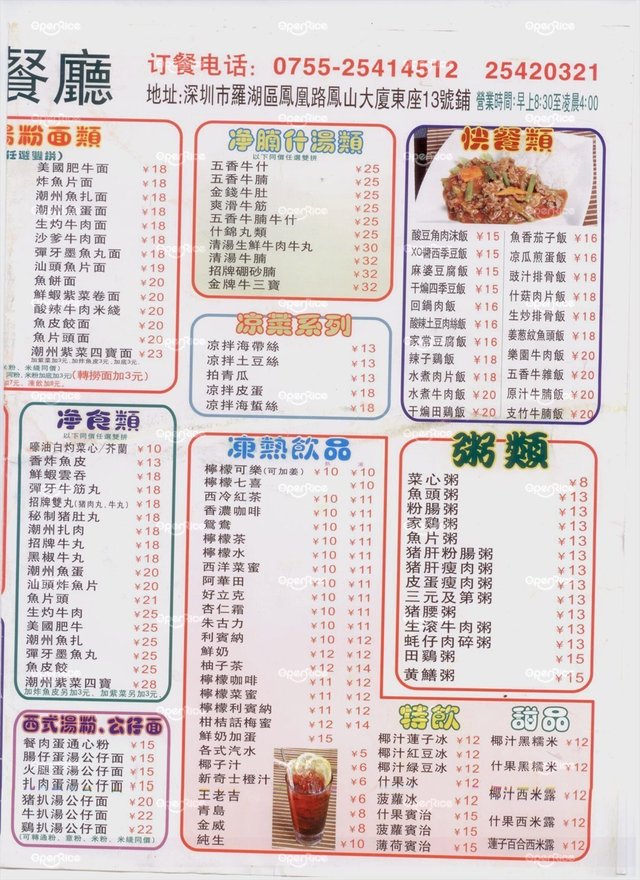 餐廳
订餐电话：0755-25414512 25420321
地址:深圳市羅湖區鳳凰路鳳山大廈東座13號鋪 營業時間:早上8:30至凌晨4:00
湯粉面類
任選雙拼)
美國肥牛面 ¥18
炸魚片面 ¥18
潮州魚扎面 ¥18
潮州魚蛋面 ¥18
生灼牛肉面 ¥18
沙爹牛肉面 ¥18
彈牙墨魚丸面 ¥18
汕頭魚片面 ¥19
魚餅面 ¥20
鮮蝦紫菜卷面 ¥20
酸辣牛肉米綫 ¥20
魚皮餃面 ¥20
魚片頭面 ¥20
潮州紫菜四寶面 ¥23
加紫菜加3元、加炸魚皮3元、加底3元。
(轉撈面加3元)
净食類
以下同價任選雙拼
嚎油白灼菜心/芥蘭 ¥10
香炸魚皮 ¥13
鮮蝦雲吞 ¥18
彈牙牛筋丸 ¥18
招牌雙丸(猪肉丸、牛丸) ¥18
秘制猪肚丸 ¥18
潮州扎肉 ¥18
招牌牛丸 ¥18
黑椒牛丸 ¥18
潮州魚蛋 ¥20
汕頭炸魚片 ¥20
魚片頭 ¥21
生灼牛肉 ¥25
美國肥牛 ¥25
潮州魚扎 ¥25
彈牙墨魚丸 ¥25
魚皮餃 ¥25
潮州紫菜四寶 ¥28
加炸魚皮另加3元、加紫菜另加3元。
西式湯粉、公仔面
餐肉蛋通心粉 ¥15
腸仔蛋湯公仔面 ¥15
火腿蛋湯公仔面 ¥15
扎肉蛋湯公仔面 ¥15
猪扒湯公仔面 ¥20
牛扒湯公仔面 ¥22
鷄扒湯公仔面 ¥22
(可轉通粉、意粉、米粉、米綫同價)
净腩什湯類
以下同價任選雙拼
五香牛什 ¥25
五香牛腩 ¥25
金錢牛肚 ¥25
爽滑牛筋 ¥25
五香牛腩牛什 ¥25
什錦丸類 ¥25
清湯生鮮牛肉牛丸 ¥30
清湯牛腩 ¥32
招牌硼砂腩 ¥32
金牌牛三寶 ¥32
凉菜系列
凉拌海帶絲 ¥13
凉拌土豆絲 ¥13
拍青瓜 ¥13
凉拌皮蛋 ¥18
凉拌海蜇絲 ¥18
凍熱飲品
檸檬可樂(可加姜) ¥10 ¥10
檸檬七喜 ¥10 ¥10
西冷紅茶 ¥10 ¥11
香濃咖啡 ¥10 ¥11
鴛鴦 ¥10 ¥11
檸檬茶 ¥10 ¥11
檸檬水 ¥10 ¥11
西洋菜蜜 ¥10 ¥11
阿華田 ¥10 ¥11
好立克 ¥10 ¥11
杏仁霜 ¥10 ¥11
朱古力 ¥10 ¥11
利賓納 ¥10 ¥12
鮮奶 ¥12 ¥12
柚子茶 ¥12 ¥14
檸檬咖啡 ¥11 ¥12
檸檬菜蜜 ¥11 ¥12
檸檬利賓納 ¥11 ¥12
柑桔話梅蜜 ¥11 ¥12
鮮奶加蛋 ¥15
各式汽水 ¥5
椰子汁 ¥6
新奇士橙汁 ¥6
王老吉 ¥6
青島 ¥8
金威 ¥8
純生 ¥10
快餐類
酸豆角肉沫飯 ¥15
XO醬西季豆飯 ¥15
麻婆豆腐飯 ¥15
干煸四季豆飯 ¥15
回鍋肉飯 ¥16
酸辣土豆肉絲飯 ¥16
家常豆腐飯 ¥16
辣子鷄飯 ¥18
水煮肉片飯 ¥18
水煮牛肉飯 ¥20
干煸田鷄飯 ¥20
魚香茄子飯 ¥16
凉瓜煎蛋飯 ¥16
豉汁排骨飯 ¥18
什菇肉片飯 ¥18
生炒排骨飯 ¥18
姜葱紋魚頭飯 ¥18
樂園牛肉飯 ¥20
五香牛雜飯 ¥20
原汁牛腩飯 ¥20
支竹牛腩飯 ¥20
粥類
菜心粥 ¥8
魚頭粥 ¥13
粉腸粥 ¥13
家鷄粥 ¥13
魚片粥 ¥13
猪肝粉腸粥 ¥13
猪肝瘦肉粥 ¥13
皮蛋瘦肉粥 ¥13
三元及第粥 ¥13
猪腰粥 ¥13
生滾牛肉粥 ¥13
蚝仔肉碎粥 ¥13
田鷄粥 ¥15
黄鱔粥 ¥15
特飲
椰汁蓮子冰 ¥12
椰汁紅豆冰 ¥12
椰汁綠豆冰 ¥12
什果冰 ¥12
菠蘿冰 ¥12
什果賓治 ¥15
菠蘿賓治 ¥15
薄荷賓治 ¥15
甜品
椰汁黑糯米 ¥12
什果黑糯米 ¥12
椰汁西米露 ¥12
什果西米露 ¥12
蓮子百合西米露 ¥12